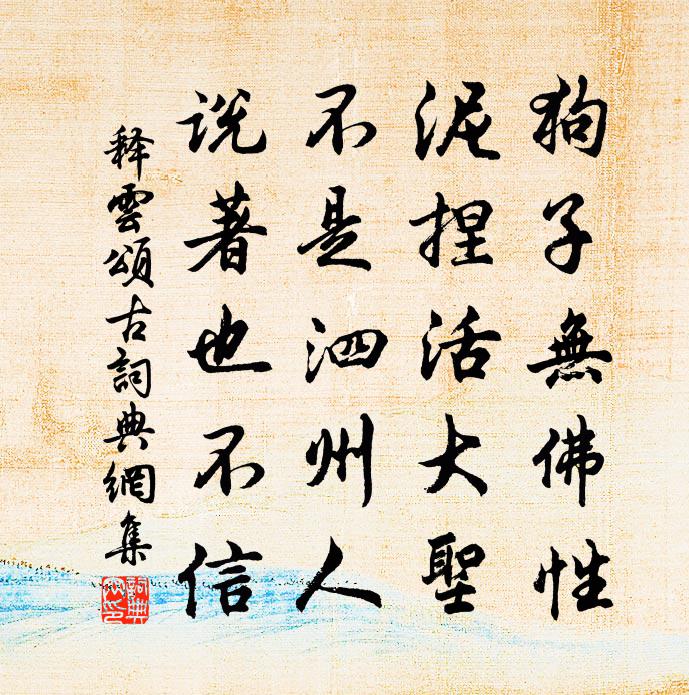 狗子無佛性
泥捏活大聖
不是泗州人
説著也不信
释雲頌古詞典網集